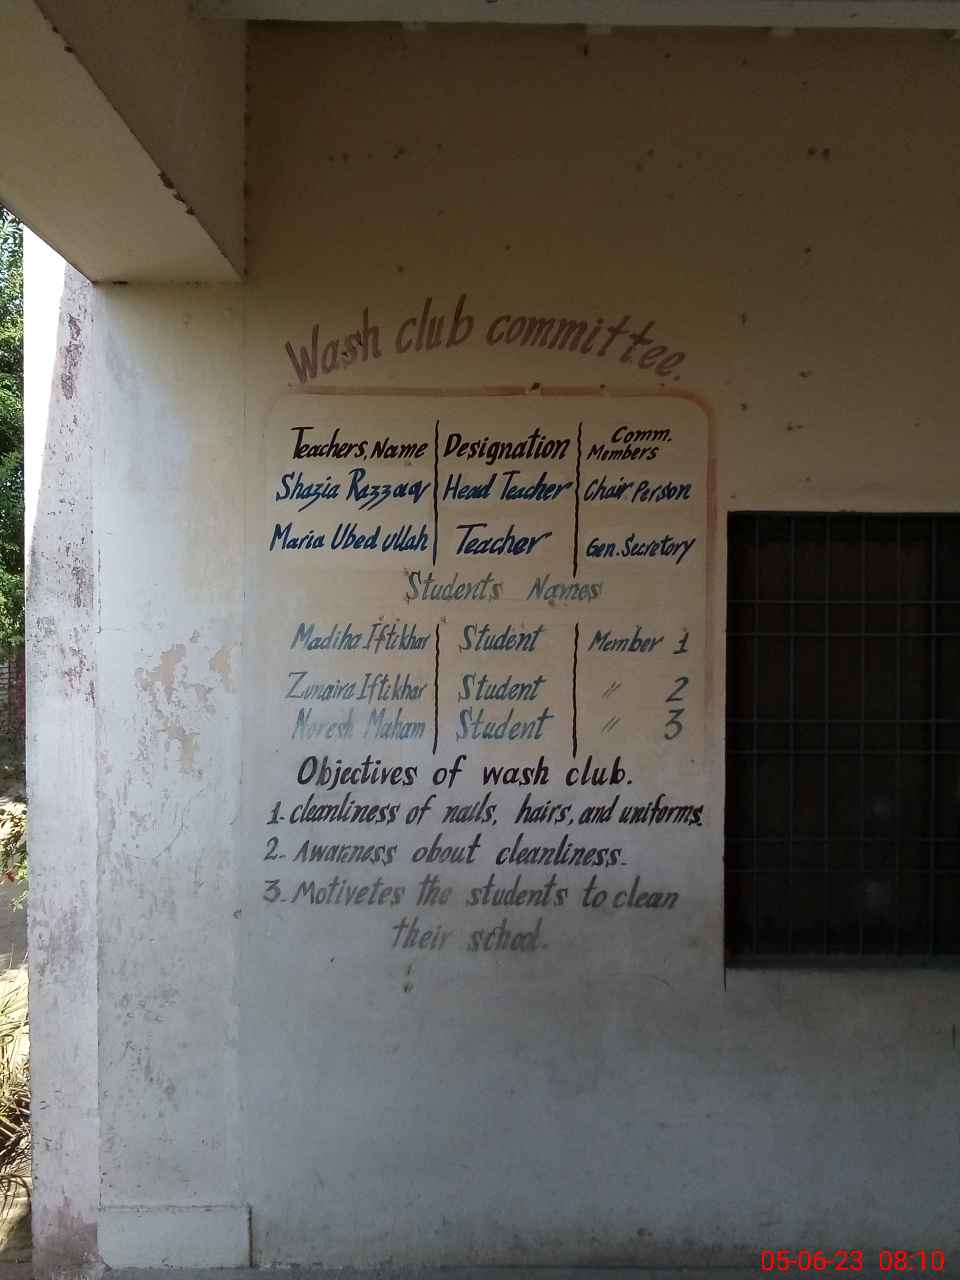 Wash club committee.
Teachers, Name Designation Comm. Members
Shazia Razzaq Head Teacher Chair Person
Maria Ubed ullah Teacher Gen. Secretory
Students Names
Madiha Iftikhar Student Member 1
Zunaira Iftikhar Student " 2
Noresh Maham Student " 3
Objectives of wash club.
1- cleanliness of nails, hairs, and uniforms.
2- Awareness obout cleanliness-
3- Motivetes the students to clean
their school.
05-06-23 08:10